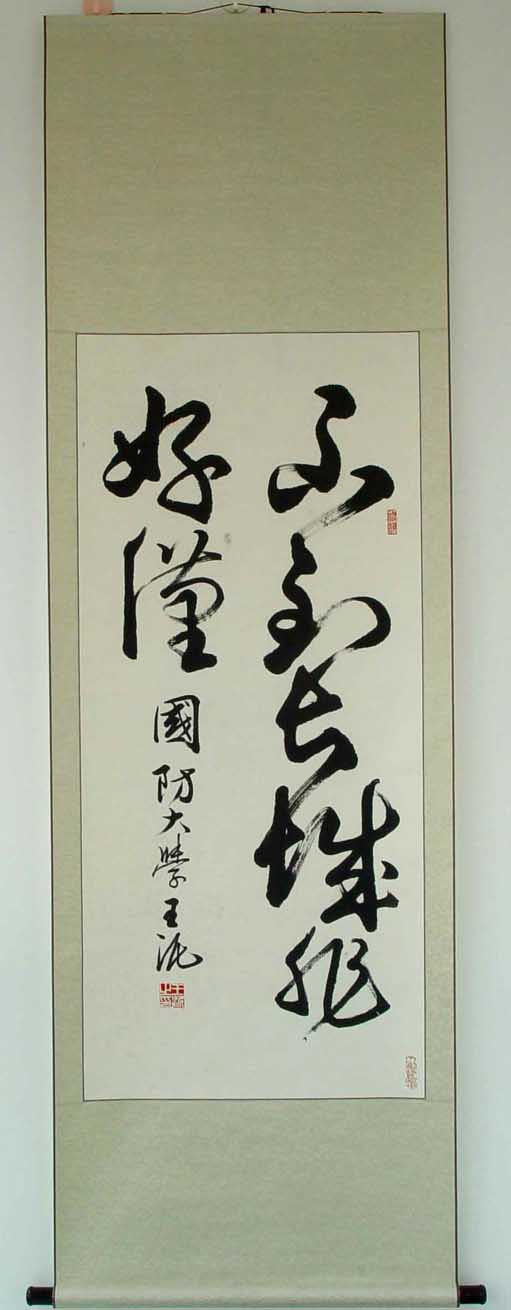 不到長城非
好漢
國防大學王泥